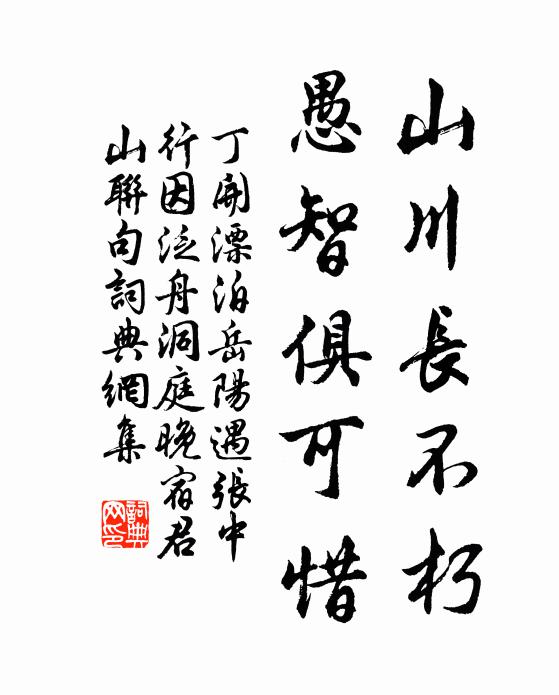 山川長不朽
愚智俱可惜
丁開漂泊岳陽遇張中
行因泛舟洞庭晚宿君
山聯句詞典網集
詞典
网印